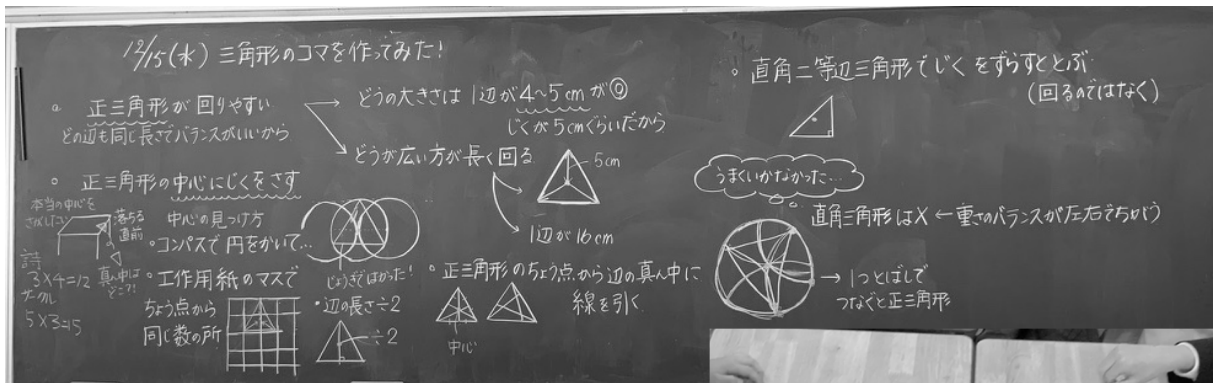 12/15(水) 三角形のコマを作ってみた!
。正三角形が回りやすい
どの辺も同じ長さでバランスがいいから
どうの大きさは1辺が4〜5cmが◎
じくが5cmぐらいだから
どうが広い方が長く回る
5cm
1辺が16cm
。正三角形の中心にじくをさす
本当の中心を
さがしたい
落ちる
直前
真ん中は
どこ?!
中心の見つけ方
・コンパスで円をかいて…
・工作用紙のマスで
ちょう点から
同じ数の所
じょうぎではかった!
・辺の長さ÷2
÷2
3×4=12
5×3=15
。正三角形のちょう点から辺の真ん中に
線を引く
中心
。直角二等辺三角形でじくをずらすととぶ
(回るのではなく)
うまくいかなかった…
直角三角形はX ← 重さのバランスが左右でちがう
→ 1つとばしで
つなぐと正三角形